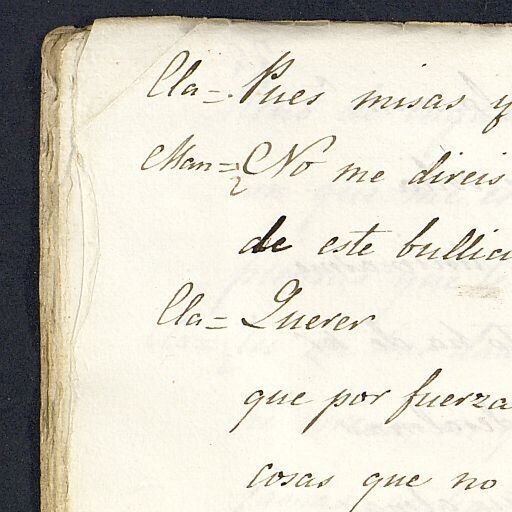 Cla=. Pues misas y
Man=¿No me direis
de este bullici
Cla= Querer
que por fuerza
cosas que no